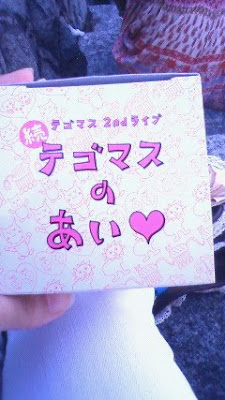 テゴマス 2ndライブ
続 テゴマス
の
あい♥